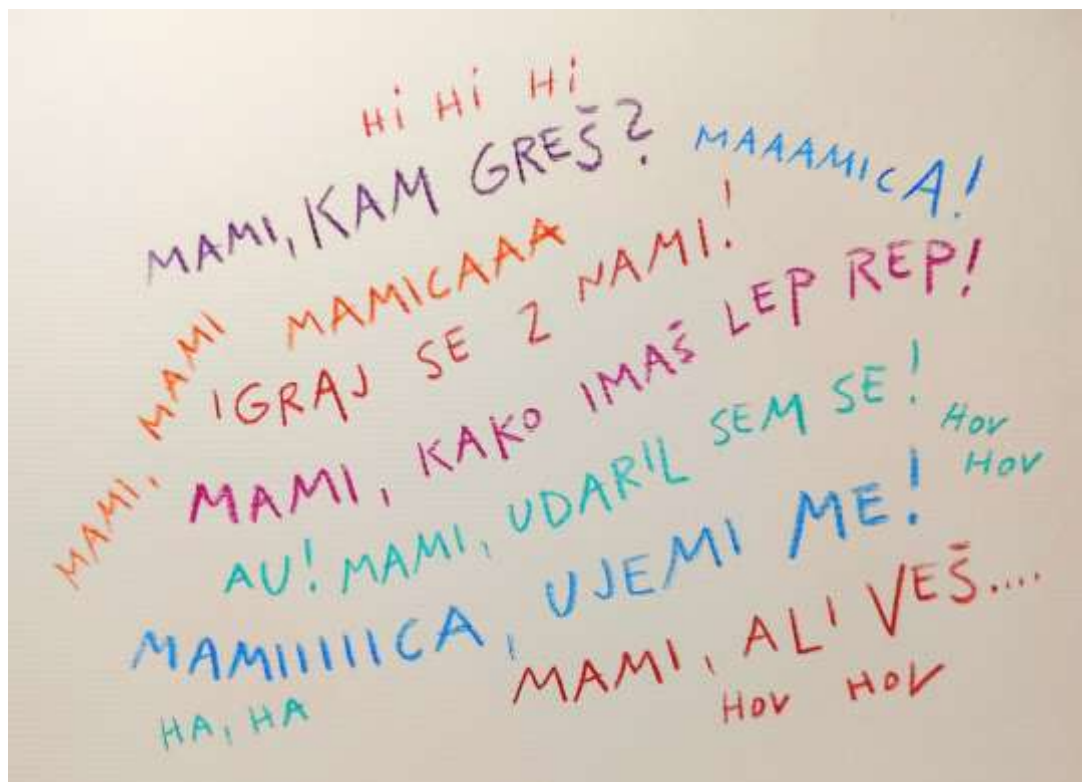 Hi Hi Hi
MAMI, KAM GREŠ?
MAAAMICA!
MAMI, MAMI
MAMICAAA
IGRAJ SE Z NAMI!
MAMI, KAKO IMAŠ LEP REP!
AU! MAMI, UDARIL SEM SE!
HOV
HOV
MAMIIIIICA, UJEMI ME!
MAMI, ALI VEŠ....
HA, HA
HOV HOV